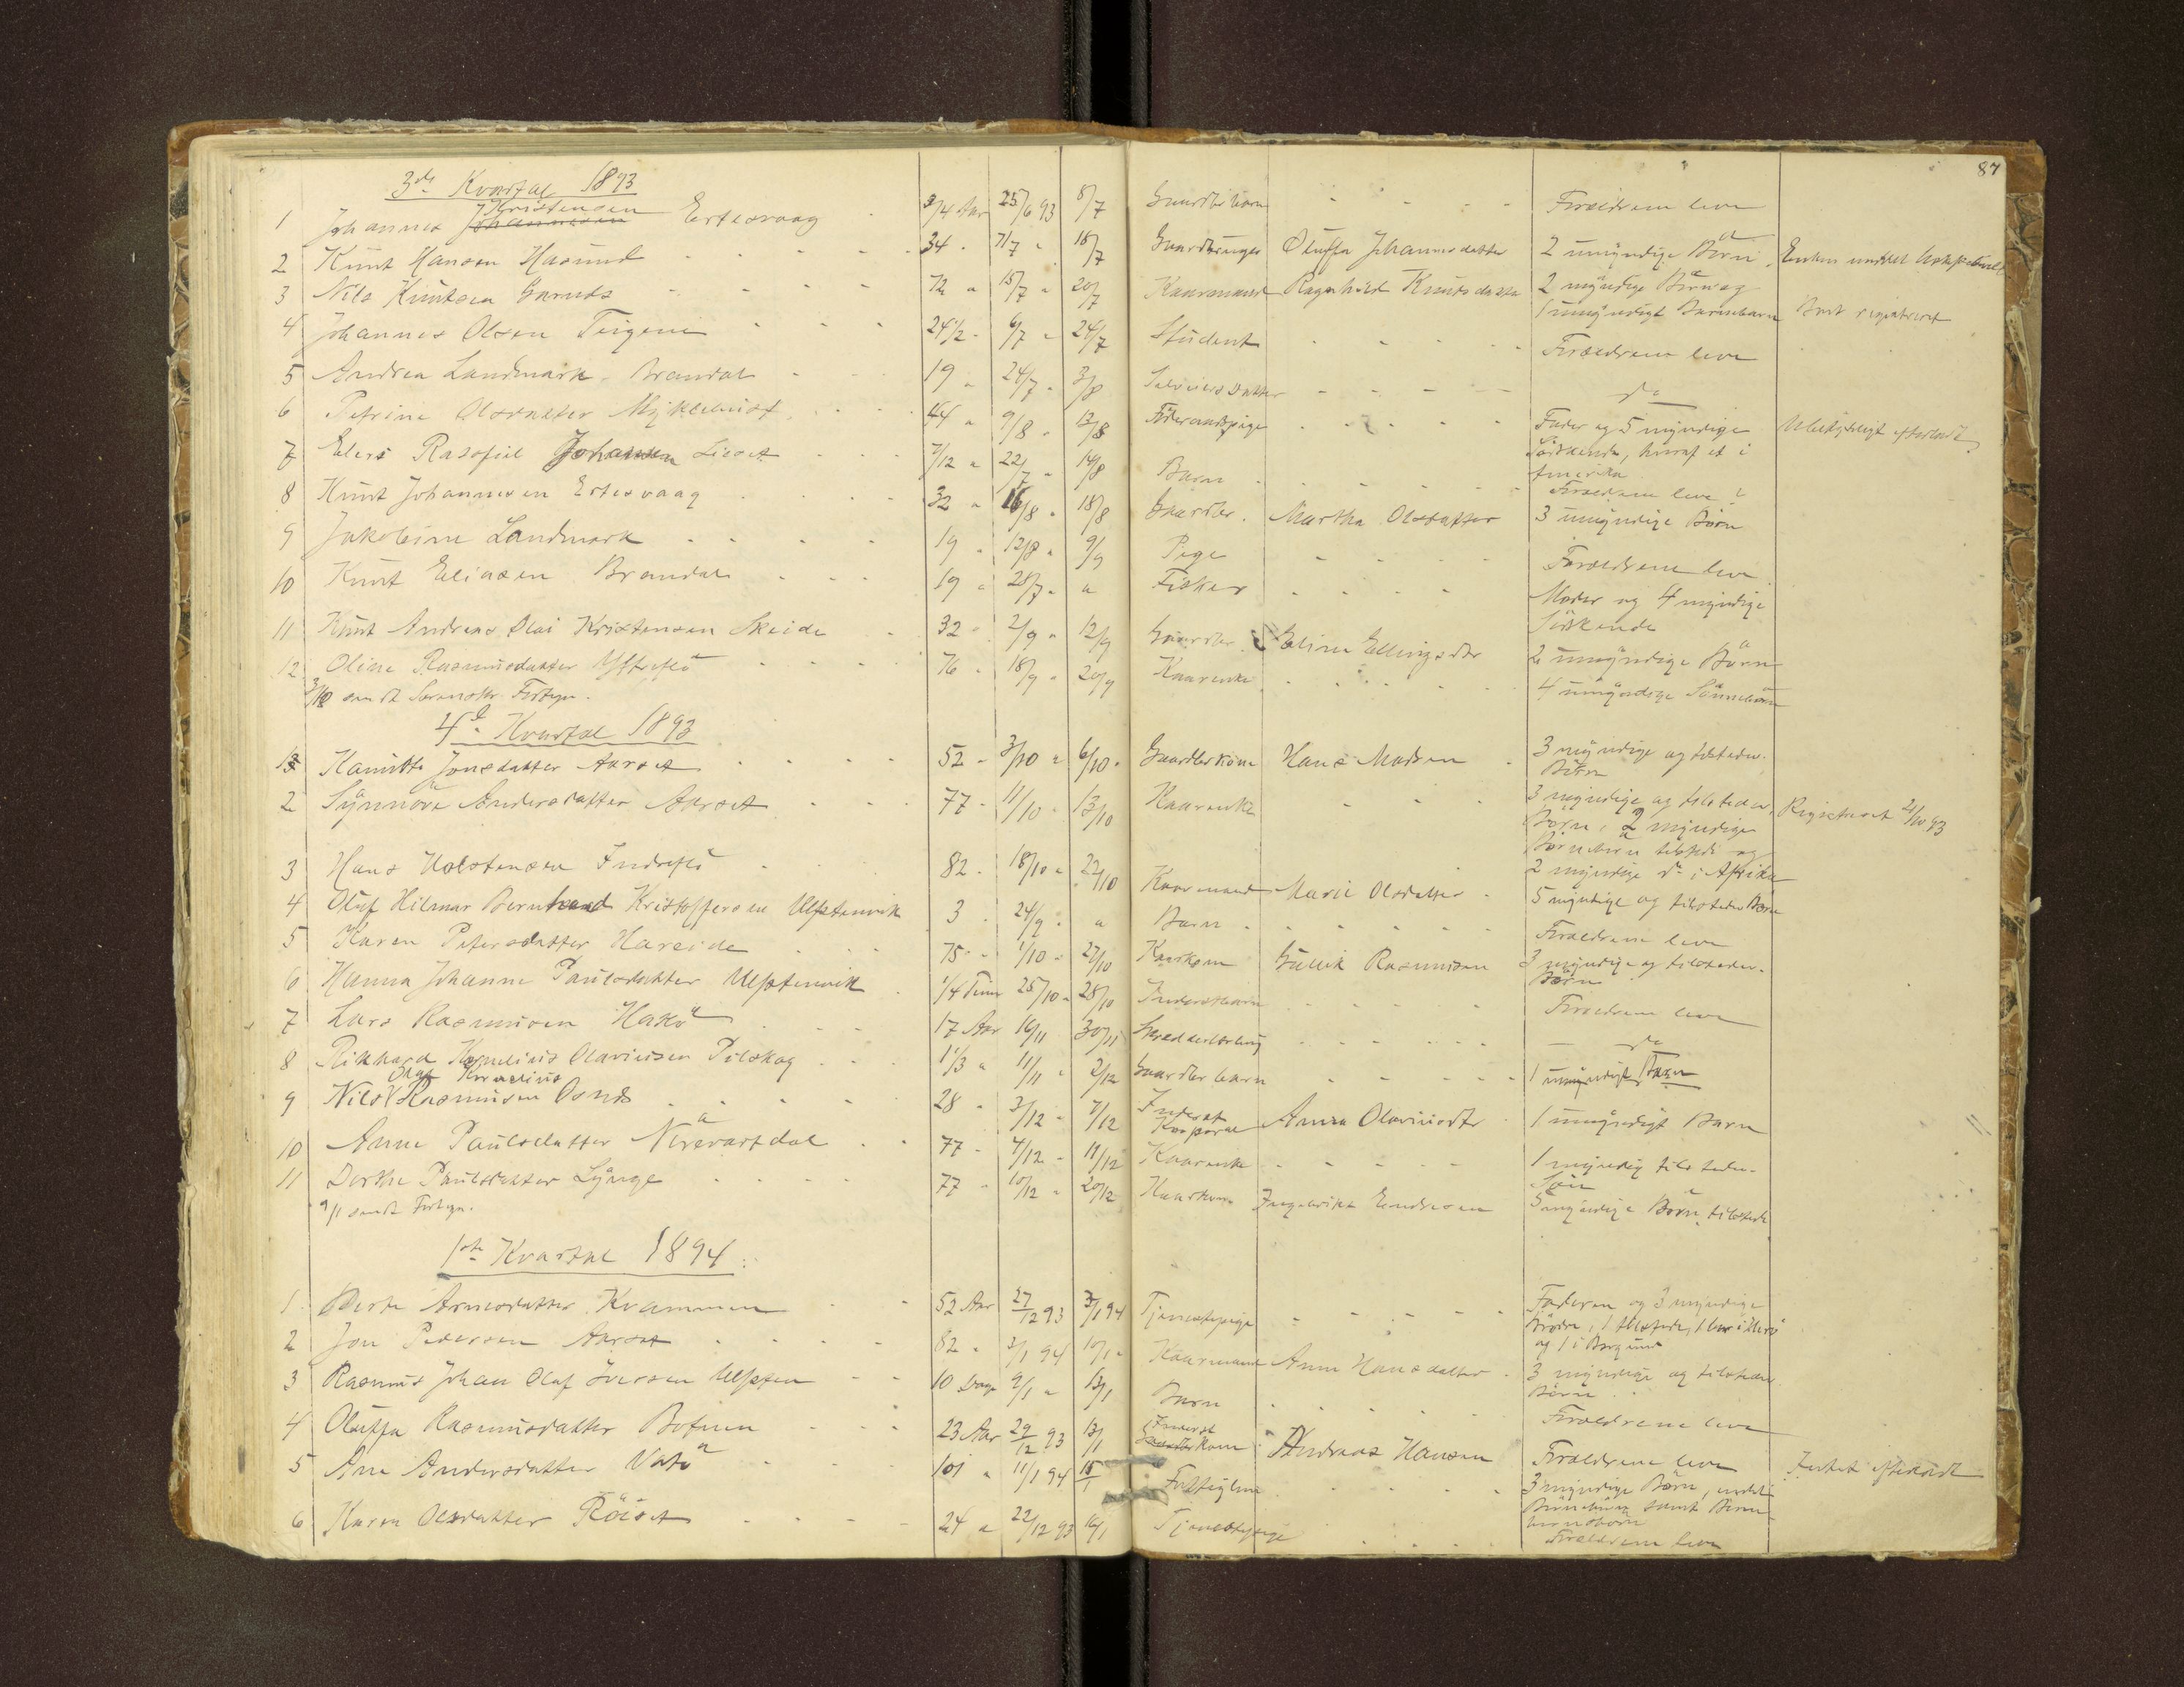 87
3de Kvartal 1893
1 Johannes Kristensen Johannesen Ertesvaag 3/4 Aar 25/6 93 8/7 Gaardbr barn Forældrene leve
2 Knut Hansen Hasund 34 " 7/7 " 18/7 Gaardbruger Oluffa Johannesdatter 2 umyndige Børn Enken
3 Nils Knutsen Garnes 72 " 15/7 " 20/7 Kaarmand Ragnhild Knutsdatter 2 myndige Børn og
1 umyndigt Barnebarn Boet registreret
4 Johannes Olsen Teigene 24 1/2 " 6/7 " 24/7 Student Forældrene leve
5 Andrea Landmark Brandal 19 " 24/7 " 3/8 datter do
6 Petrine Olsdatter Myklebust 44 " 9/8 " 12/8 Føderaadspige Fader og 5 myndige
Sødskende, hvoraf et i
Amerika Ubetydeligt efterladt
7 Elers Rasofiel Johansen Lioset 7/12 " 22/7 " 14/8 Barn Forældrene leve
8 Knut Johannesen Ertesvaag 32 " 16/8 " 18/8 Gaardbr. Martha Olsdatter 3 umyndige Børn
9 Jakobine Landmark 19 " 12/8 " 9/9 Pige Forældrene leve
10 Knut Eliasen Brandal 19 " 28/7 " " Fisker Moder og 4 myndige
Sødskende
11 Knut Andreas Olai Kristensen Skeide 32 " 2/9 " 12/9 Gaardbr. Eline Ellingsdtr 2 umyndige Børn
12 Oline Rasmusdatter Ytreflø 76 " 18/9 " 20/9 Kaarenke 4 umyndige Sønnebørn
3/10 sendt Sorenskr. Fortegn.
4de Kvartal 1893
1 Kamitte Jonsdatter Aarset 52 " 3/10 " 6/10 " Gaardbr kone Hans Madsen 3 myndige og tilstedev.
Børn
2 Synnøve Andersdatter Aarset 77 " 11/10 " 13/10 Kaarenke 3 myndige og tilstedev.
Børn, 2 myndige
Børnebørn tilstede og
2 myndige do i Afrika Registreret 21/10 93
3 Hans Holstensen Indreflø 82 " 18/10 " 22/10 Kaarmand Marie Olsdatter 5 myndige og tilstedev Børn
4 Oluf Hilmar Bernhard Kristoffersen Ulfstenvik 3 " 24/9 " " Barn Forældrene leve
5 Karen Petersdatter Hareide 75 " 1/10 " 27/10 Kaarkone Gullik Rasmusen 3 myndige og tilstedev.
Børn
6 Hanna Johanne Paulsdatter Ulfstenvik 1/4 Time 25/10 " 28/10 Inderstbarn Forældrene leve
7 Lars Rasmusen Hakø 17 Aar 16/11 30/11 do
8 Rikhard Kornelius Olaviusen Pilskog 1 1/3 " 11/11 " 2/12 Gaardbr barn 1 umyndigt Barn
9 Nils Olaf Kornelius Rasmusen Osnes 28 " 3/12 " 7/12 Inderst
Korporal Anna Olaviusdtr 1 umyndigt Barn
10 Anne Paulsdatter Nærevartdal 77 " 4/12 " 11/12 Kaarenke 1 myndig tilstedev.
Søn
11 Dorthe Paulsdatter Lynge 77 " 10/12 " 20/12 Kaarkone Ingebrikt Endresen 5 myndige Børn tilstede
9/1 sendt Fortegn.
1ste Kvartal 1894.
1 Berte Arnesdatter Kvammen 52 Aar 27/12 93 3/1 94 Tjenestepige Faderen og 3 myndige
Brødre, 1 tilstede, 1 bor i Herø
og 1 i Borgund
2 Jon Pedersen Aarset 82 " 3/1 94 10/1 " Kaarmand Anne Hansdatter 3 myndige og tilstedev.
Børn
3 Rasmus Johan Olaf Iversen Ulfsten 10 Dage 9/1 " 13/1 Barn Forældrene leve
4 Oluffa Rasmusdatter Botnen 23 Aar 29/12 93 13/1 Inderst
Gaardbr kone Andreas Hansen Forældrene leve
5 Ane Andersdatter Vatø 101 " 11/1 94 15/1 Fattiglem 3 myndige Børn,
Børnebørn samt Børne-
børnsbørn Intet efterladt
6 Karen Olsdatter Røiset 24 " 22/12 93 16/1 Tjenestepige Forældrene leve